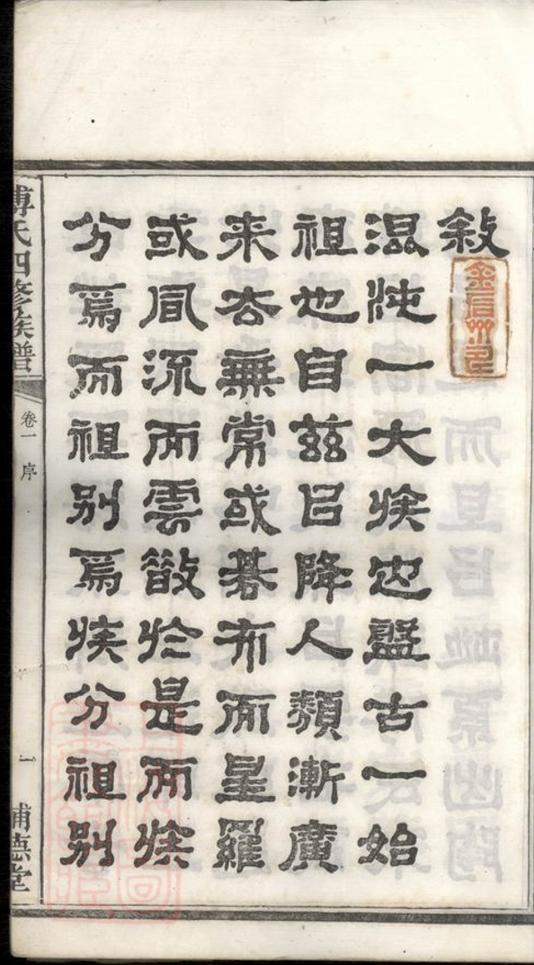 敘
混沌一大族也盤古一始
祖也自茲㠯降人類漸廣
来去無常或碁布而星羅
或同流而雲散於是而族
分焉而祖別焉族分祖別
傅氏四修族譜
卷一 序
一
浦德堂